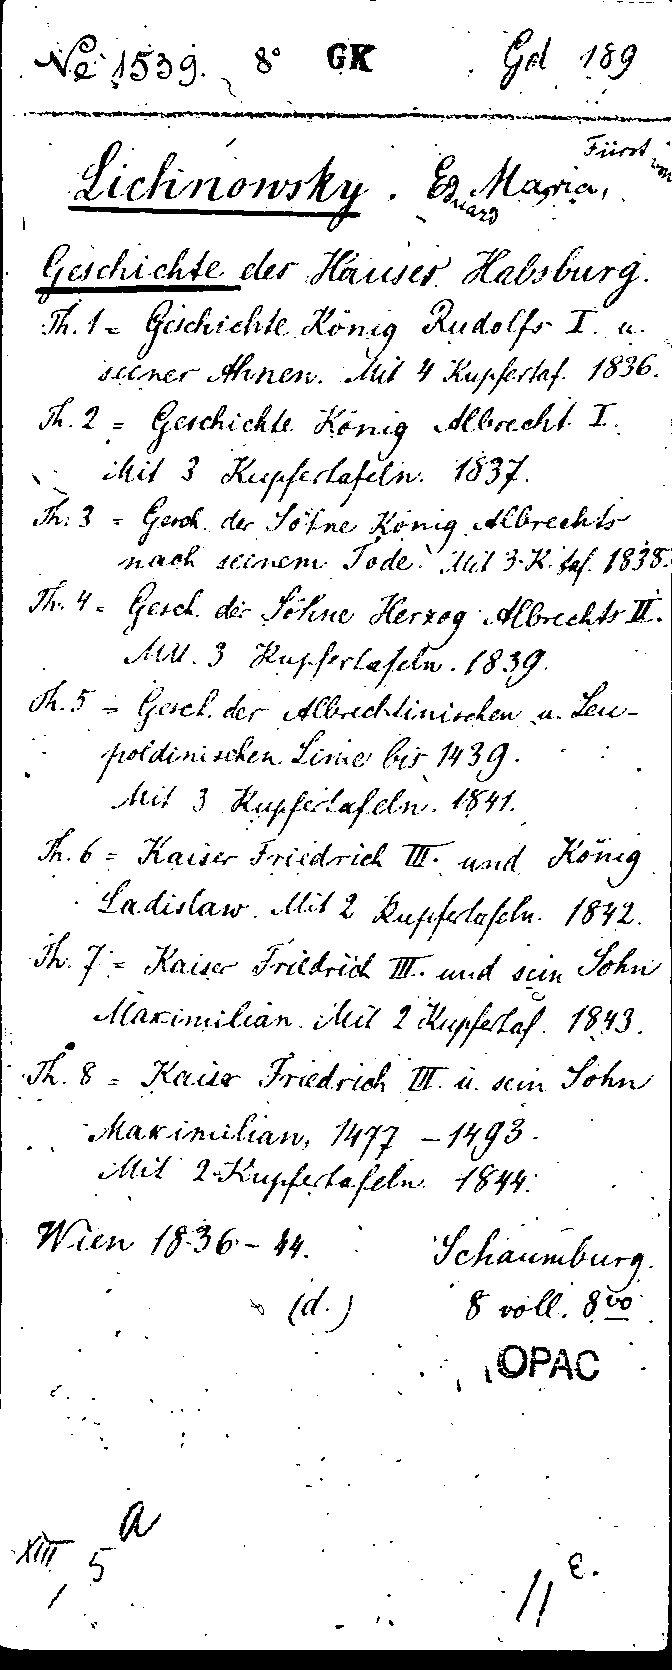 Ne 1539. 8° GK Gd 189
Fürst von
Lichnowsky. Ed. Maria,
Eduard
Geschichte des Hauses Habsburg.
Th. 1 = Geschichte König Rudolfs I. u.
seener Ahnen. Mit 4 Kupfertaf. 1836.
Th. 2 = Geschichte König Albrecht I.
Mit 3 Kupfertafeln. 1837.
Th. 3 = Gesch. der Söhne König Albrechts
nach seinem Tode. Mit 3 K.taf. 1838.
Th. 4 = Gesch. der Söhne Herzog Albrechts II.
Mit 3 Kupfertafeln. 1839.
Th. 5 = Gesch. der Albrechtinischen u. Leu-
poldinischen Linie bis 1439.
Mit 3 Kupfertafeln. 1841.
Th. 6 = Kaiser Friedrich III. und König
Ladislaw. Mit 2 Kupfertafeln. 1842.
Th. 7 = Kaiser Friedrich III. und sein Sohn
Maximilian. Mit 2 Kupfertaf. 1843.
Th. 8 = Kaiser Friedrich III. u. sein Sohn
Maximilian, 1477 - 1493.
Mit 2 Kupfertafeln. 1844.
Wien 1836 - 44. Schaumburg.
(d.) 8 voll. 8vo
OPAC
a
XIII 5
11 E.